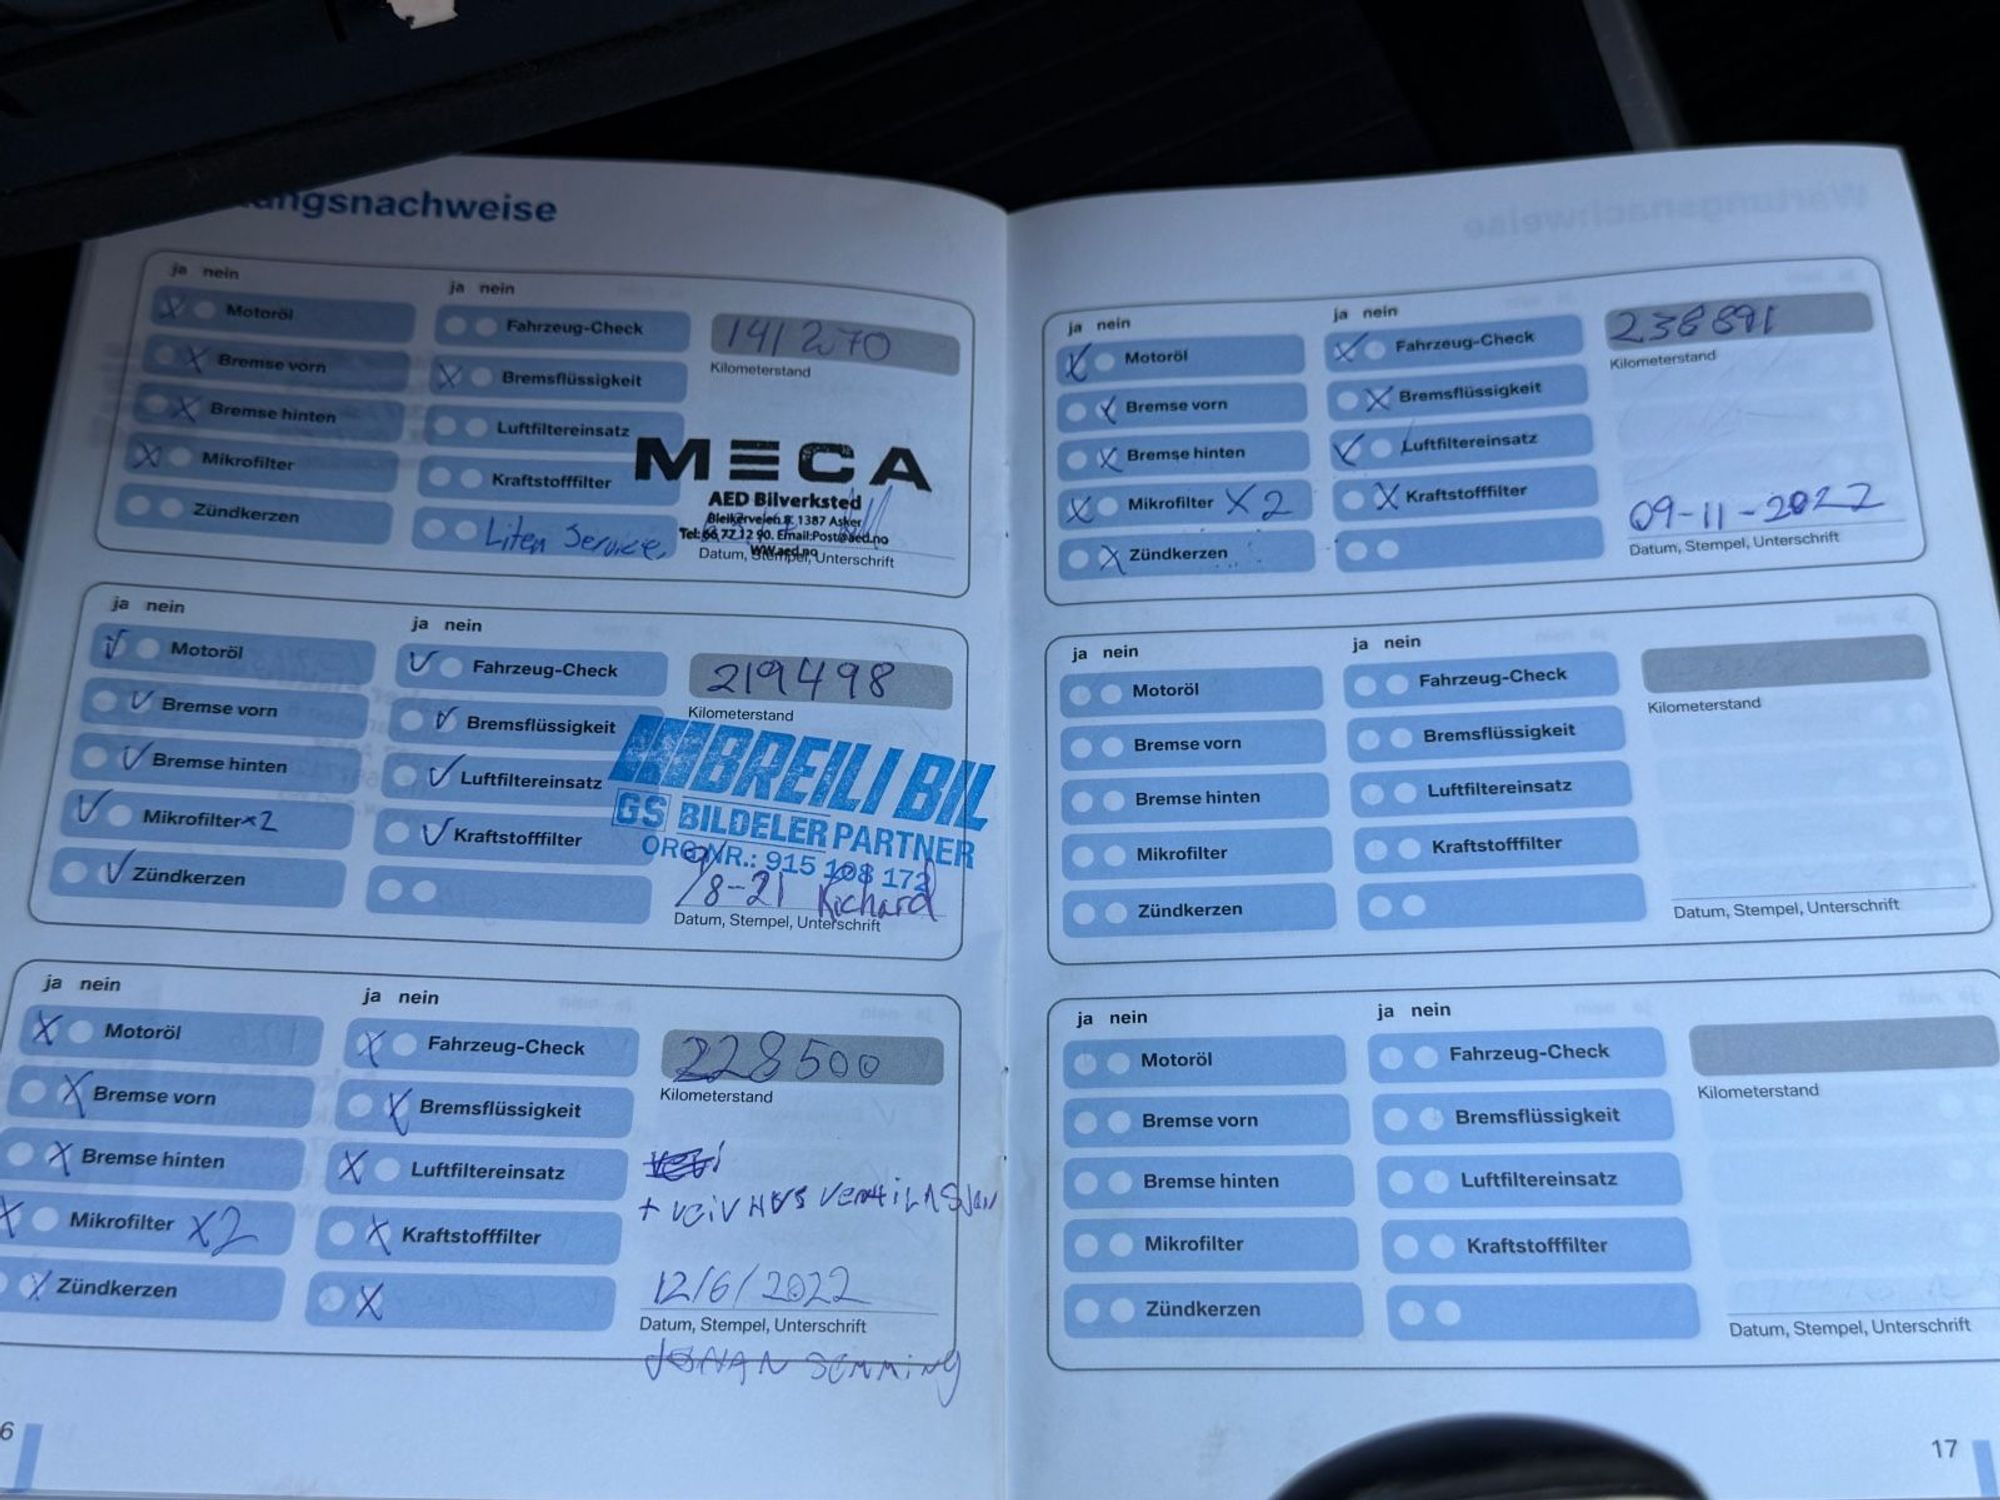 ungsnachweise
ja nein
Motoröl
Bremse vorn
Bremse hinten
Mikrofilter
Zündkerzen
ja nein
Fahrzeug-Check
Bremsflüssigkeit
Luftfiltereinsatz
Kraftstofffilter
Liten Service
141270
Kilometerstand
MECA
AED Bilverksted
Bleikerveien 8, 1387 Asker
Tel: 66 77 12 90. Email:Post@aed.no
WW.aed.no
Datum, Stempel, Unterschrift
ja nein
Motoröl
Bremse vorn
Bremse hinten
Mikrofilter x2
Zündkerzen
ja nein
Fahrzeug-Check
Bremsflüssigkeit
Luftfiltereinsatz
Kraftstofffilter
219498
Kilometerstand
BREILI BIL
GS BILDELER PARTNER
ORG.NR.: 915 108 172
/8-21 Richard
Datum, Stempel, Unterschrift
ja nein
Motoröl
Bremse vorn
Bremse hinten
Mikrofilter X2
Zündkerzen
ja nein
Fahrzeug-Check
Bremsflüssigkeit
Luftfiltereinsatz
Kraftstofffilter
228500
Kilometerstand
+ veivhus
12/6/2022
Datum, Stempel, Unterschrift
6
ja nein
Motoröl
Bremse vorn
Bremse hinten
Mikrofilter X2
Zündkerzen
ja nein
Fahrzeug-Check
Bremsflüssigkeit
Luftfiltereinsatz
Kraftstofffilter
238891
Kilometerstand
09-11-2022
Datum, Stempel, Unterschrift
ja nein
Motoröl
Bremse vorn
Bremse hinten
Mikrofilter
Zündkerzen
ja nein
Fahrzeug-Check
Bremsflüssigkeit
Luftfiltereinsatz
Kraftstofffilter
Kilometerstand
Datum, Stempel, Unterschrift
ja nein
Motoröl
Bremse vorn
Bremse hinten
Mikrofilter
Zündkerzen
ja nein
Fahrzeug-Check
Bremsflüssigkeit
Luftfiltereinsatz
Kraftstofffilter
Kilometerstand
Datum, Stempel, Unterschrift
17